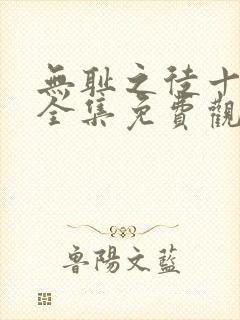 無耻之徒十
全集免費觀
魯陽文藍